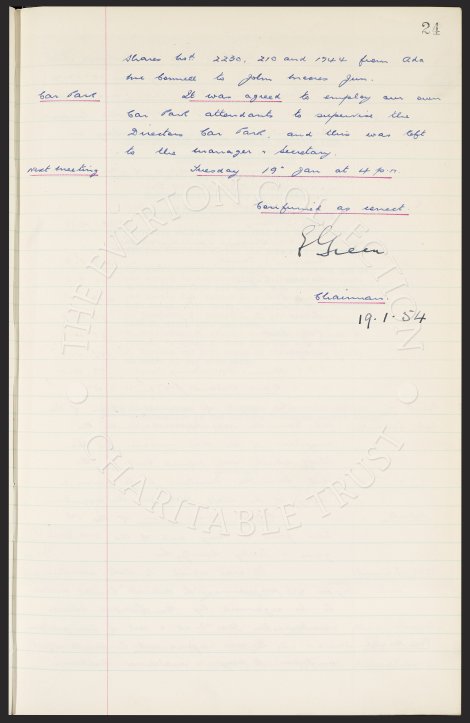 24
Shares Cert. 2230, 210 and 1944 from Ada
Mc Connell to John Moores Jun.
Car Park It was agreed to employ our own
Car Park attendants to supervise the
Directors Car Park, and this was left
to the Manager & Secretary
Next Meeting Tuesday 19th Jan at 4 p.m.
Confirmed as correct
E Green
Chairman.
19.1.54
THE EVERTON COLLECTION
CHARITABLE TRUST